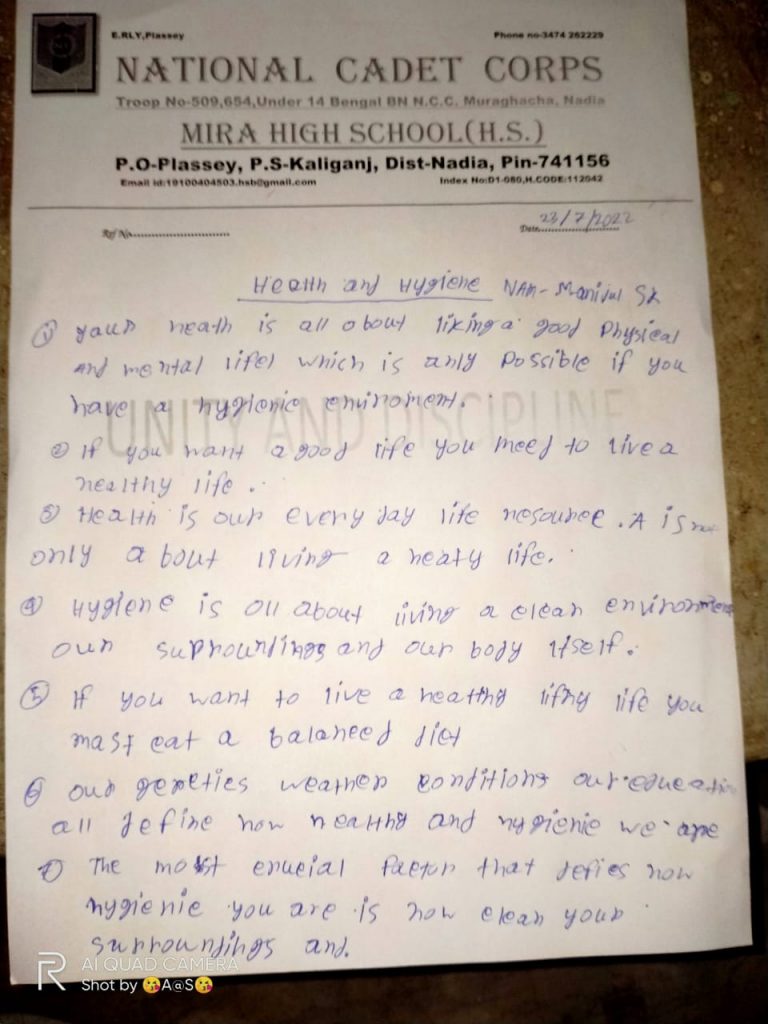 E.RLY,Plassey
Phone no-3474 262229
NATIONAL CADET CORPS
Troop No-509,654,Under 14 Bengal BN N.C.C. Muraghacha, Nadia
MIRA HIGH SCHOOL(H.S.)
P.O-Plassey, P.S-Kaliganj, Dist-Nadia, Pin-741156
Email id:19100404503.hsb@gmail.com
Index No:D1-080,H.CODE:112042
Ref No
Date 23/7/2022
Health and Hygiene NAM- Manijul SK
① your heath is all about liking a good Physical
And mental life) which is only Possible if you
have a hygienic enviroment.
UNITY AND DISCIPLINE
② If you want a good life you need to live a
healthy life.
③ Health is our every day life resource. A is not
only about living a heaty life.
④ Hygiene is all about living a clean environment
our surroundings and our body itself.
⑤ If you want to live a heatthy life you
mast eat a balanced diet
⑥ Our genetics weather conditions our education
all define how healthy and hygienic we are
⑦ The most crucial factor that defies how
hygienic you are is how clean your
surroundings and.
AI QUAD CAMERA
Shot by 😘A@S😘